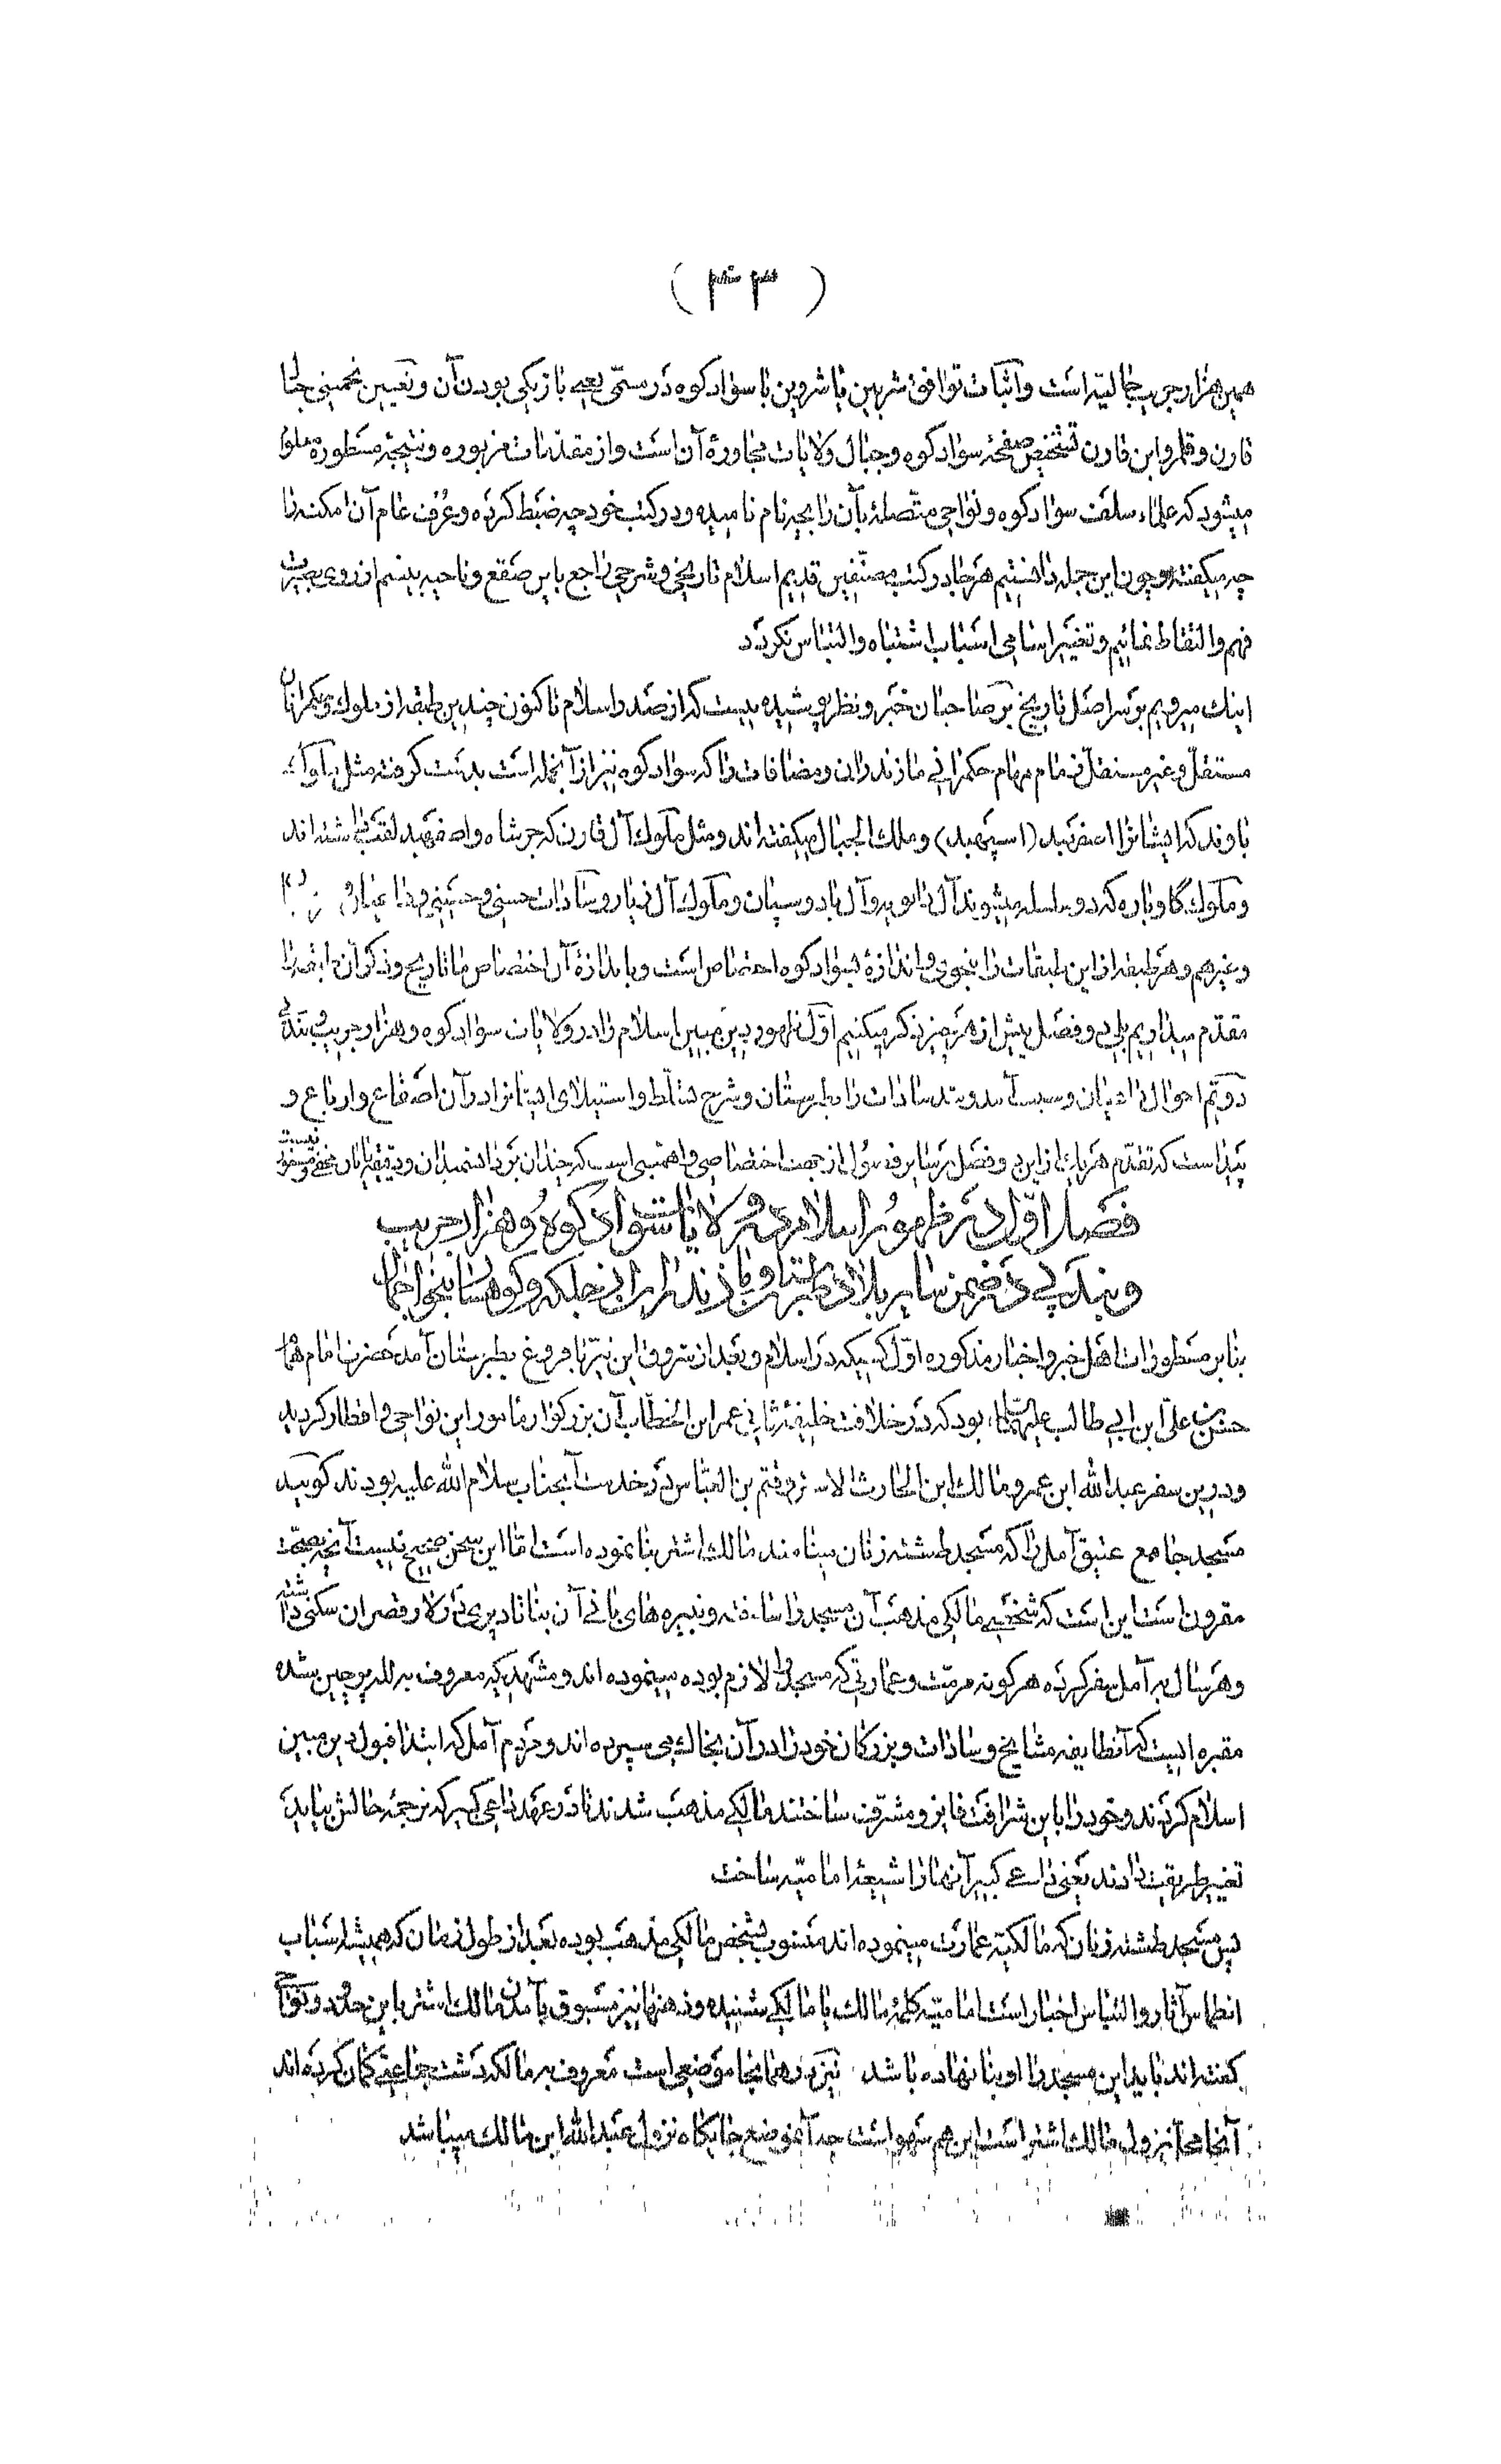 ( ۴۳ )
همین هزار جریب حالیه است و اثبات توافق شهرین یا شروین با سواد کوه در سمتی یعنی باز یکی بودن آن و تعیین تخمینی جبال
قارن و قلمرو ابن قارن تشخیص صفحهٔ سواد کوه و جبال ولایات مجاورهٔ آن است و از مقدمات مزبوره و نتیجهٔ مسطوره معلوم
میشود که علماء سلف سواد کوه و نواحی متصلهٔ بآن را بچه نام نامیده و در کتب خود چه ضبط کرده و عرف عام آن امکنه را
چه میگفته و چون این جمله دانستیم هرجا در کتب مصنفین قدیم اسلام تاریخی و شرحی راجع باین صقع و ناحیه بینیم از روی بصیرت
فهم و التقاط نمائیم و تغییر اسامی اسباب اشتباه و التباس نگردد
اینک میرویم بر سر اصل تاریخ بر صاحبان خبر و نظر پوشیده نیست که از صدر اسلام تا کنون چندین طبقه از ملوک و حکمرانان
مستقل و غیر مستقل زمام مهام حکمرانی مازندران و مضافات را که سواد کوه نیز از آنجمله است بدست گرفته مثل ملوک
باوند که ایشانرا اصفهبد (اسپهبد) و ملک الجبال میگفته اند و مثل ملوک آل قارن که جرشاه و اصفهبد لقب داشته اند
و ملوک گاوباره که دو سلسله میشوند آل دابویه و آل بادوسپان و ملوک آل زیار و سادات حسنی و حسینی و
و غیرهم و هر طبقه از این طبقات را بنحوی و اندازهٔ بسواد کوه اختصاص است و باندازهٔ آن اختصاص ما تاریخ و ذکر آن را
مقدم میداریم بلی دو فصل پیش از هر چیز ذکر میکنیم اول ظهور دین مبین اسلام را در ولایات سواد کوه و هزار جریب و بندپی
دویم احوال داعیان و سبب آمد و شد سادات را بطبرستان و شرح تسلط و استیلای ایشانرا در آن اصقاع و ارباع و
پیداست که تقدم هر یک از این دو فصل بر سایر فصول از جهت اختصاصی و اهمیتی است که چندان بر دانشمندان و دقیقه یابان مخفی و مستور نیست
فصل اول در ظهور اسلام در ولایات سواد کوه و هزار جریب
و بندپی در ضمن سایر بلاد طبرستان و مازندران از جلگه و کوهستان بنحو اجمال
بنا بر مسطورات اهل خبر و اخبار مذکوره اول کسیکه در اسلام و بعد از شروق این نیر با فروغ بطبرستان آمد حضرت امام همام
حسن بن علی ابن ابی طالب علیهما السلام بود که در خلافت خلیفهٔ ثانی عمر ابن الخطاب آن بزرگوار مامور این نواحی و اقطار گردید
و در این سفر عبدالله ابن عمر و مالک ابن الحارث الاشتر و قثم بن العباس در خدمت آنجناب سلام الله علیه بودند گویند
مسجد جامع عتیق آمل را که مسجد طشته زنان مینامند مالک اشتر بنا نموده است اما این سخن صحیح نیست آنچه بصحت
مقرون است این است که شخصی مالکی مذهب آن مسجد را ساخته و نبیره های بانی آن بنا تا دیری در لار و قصران سکنی داشته
و هر سال به آمل سفر کرده هر گونه مرمت و عمارتی که مسجد را لازم بوده مینموده اند و مشهدیکه معروف به للـه پرچین شده
مقبره ایست که آنطایفه مشایخ و سادات و بزرگان خود را در آن بخاک می سپرده اند و مردم آمل که ابتدا قبول دین مبین
اسلام کردند و خود را باین شرافت فایز و مشرف ساختند مالکی مذهب شدند تا در عهد داعی کبیر که ترجمهٔ حالش بیاید
تغییر طریقت دادند یعنی داعی کبیر آنها را شیعهٔ امامیه ساخت
پس مسجد طشته زنان که مالکیه عمارت مینموده اند منسوب بشخص مالکی مذهب بوده بعد از طول زمان که همیشه اسباب
انطماس آثار و التباس اخبار است امامیه کلمهٔ مالک یا مالکی شنیده و ذهنها نیز مسبوق بآمدن مالک اشتر باین حدود و نواحی
گفته اند باید این مسجد را او بنا نهاده باشد نیز در همانجا موضعی است معروف به مالکه دشت جماعتی گمان کرده اند
آنجا محل نزول مالک اشتر است این هم سهو است چه آنموضع جایگاه نزول عبدالله ابن مالک میباشد